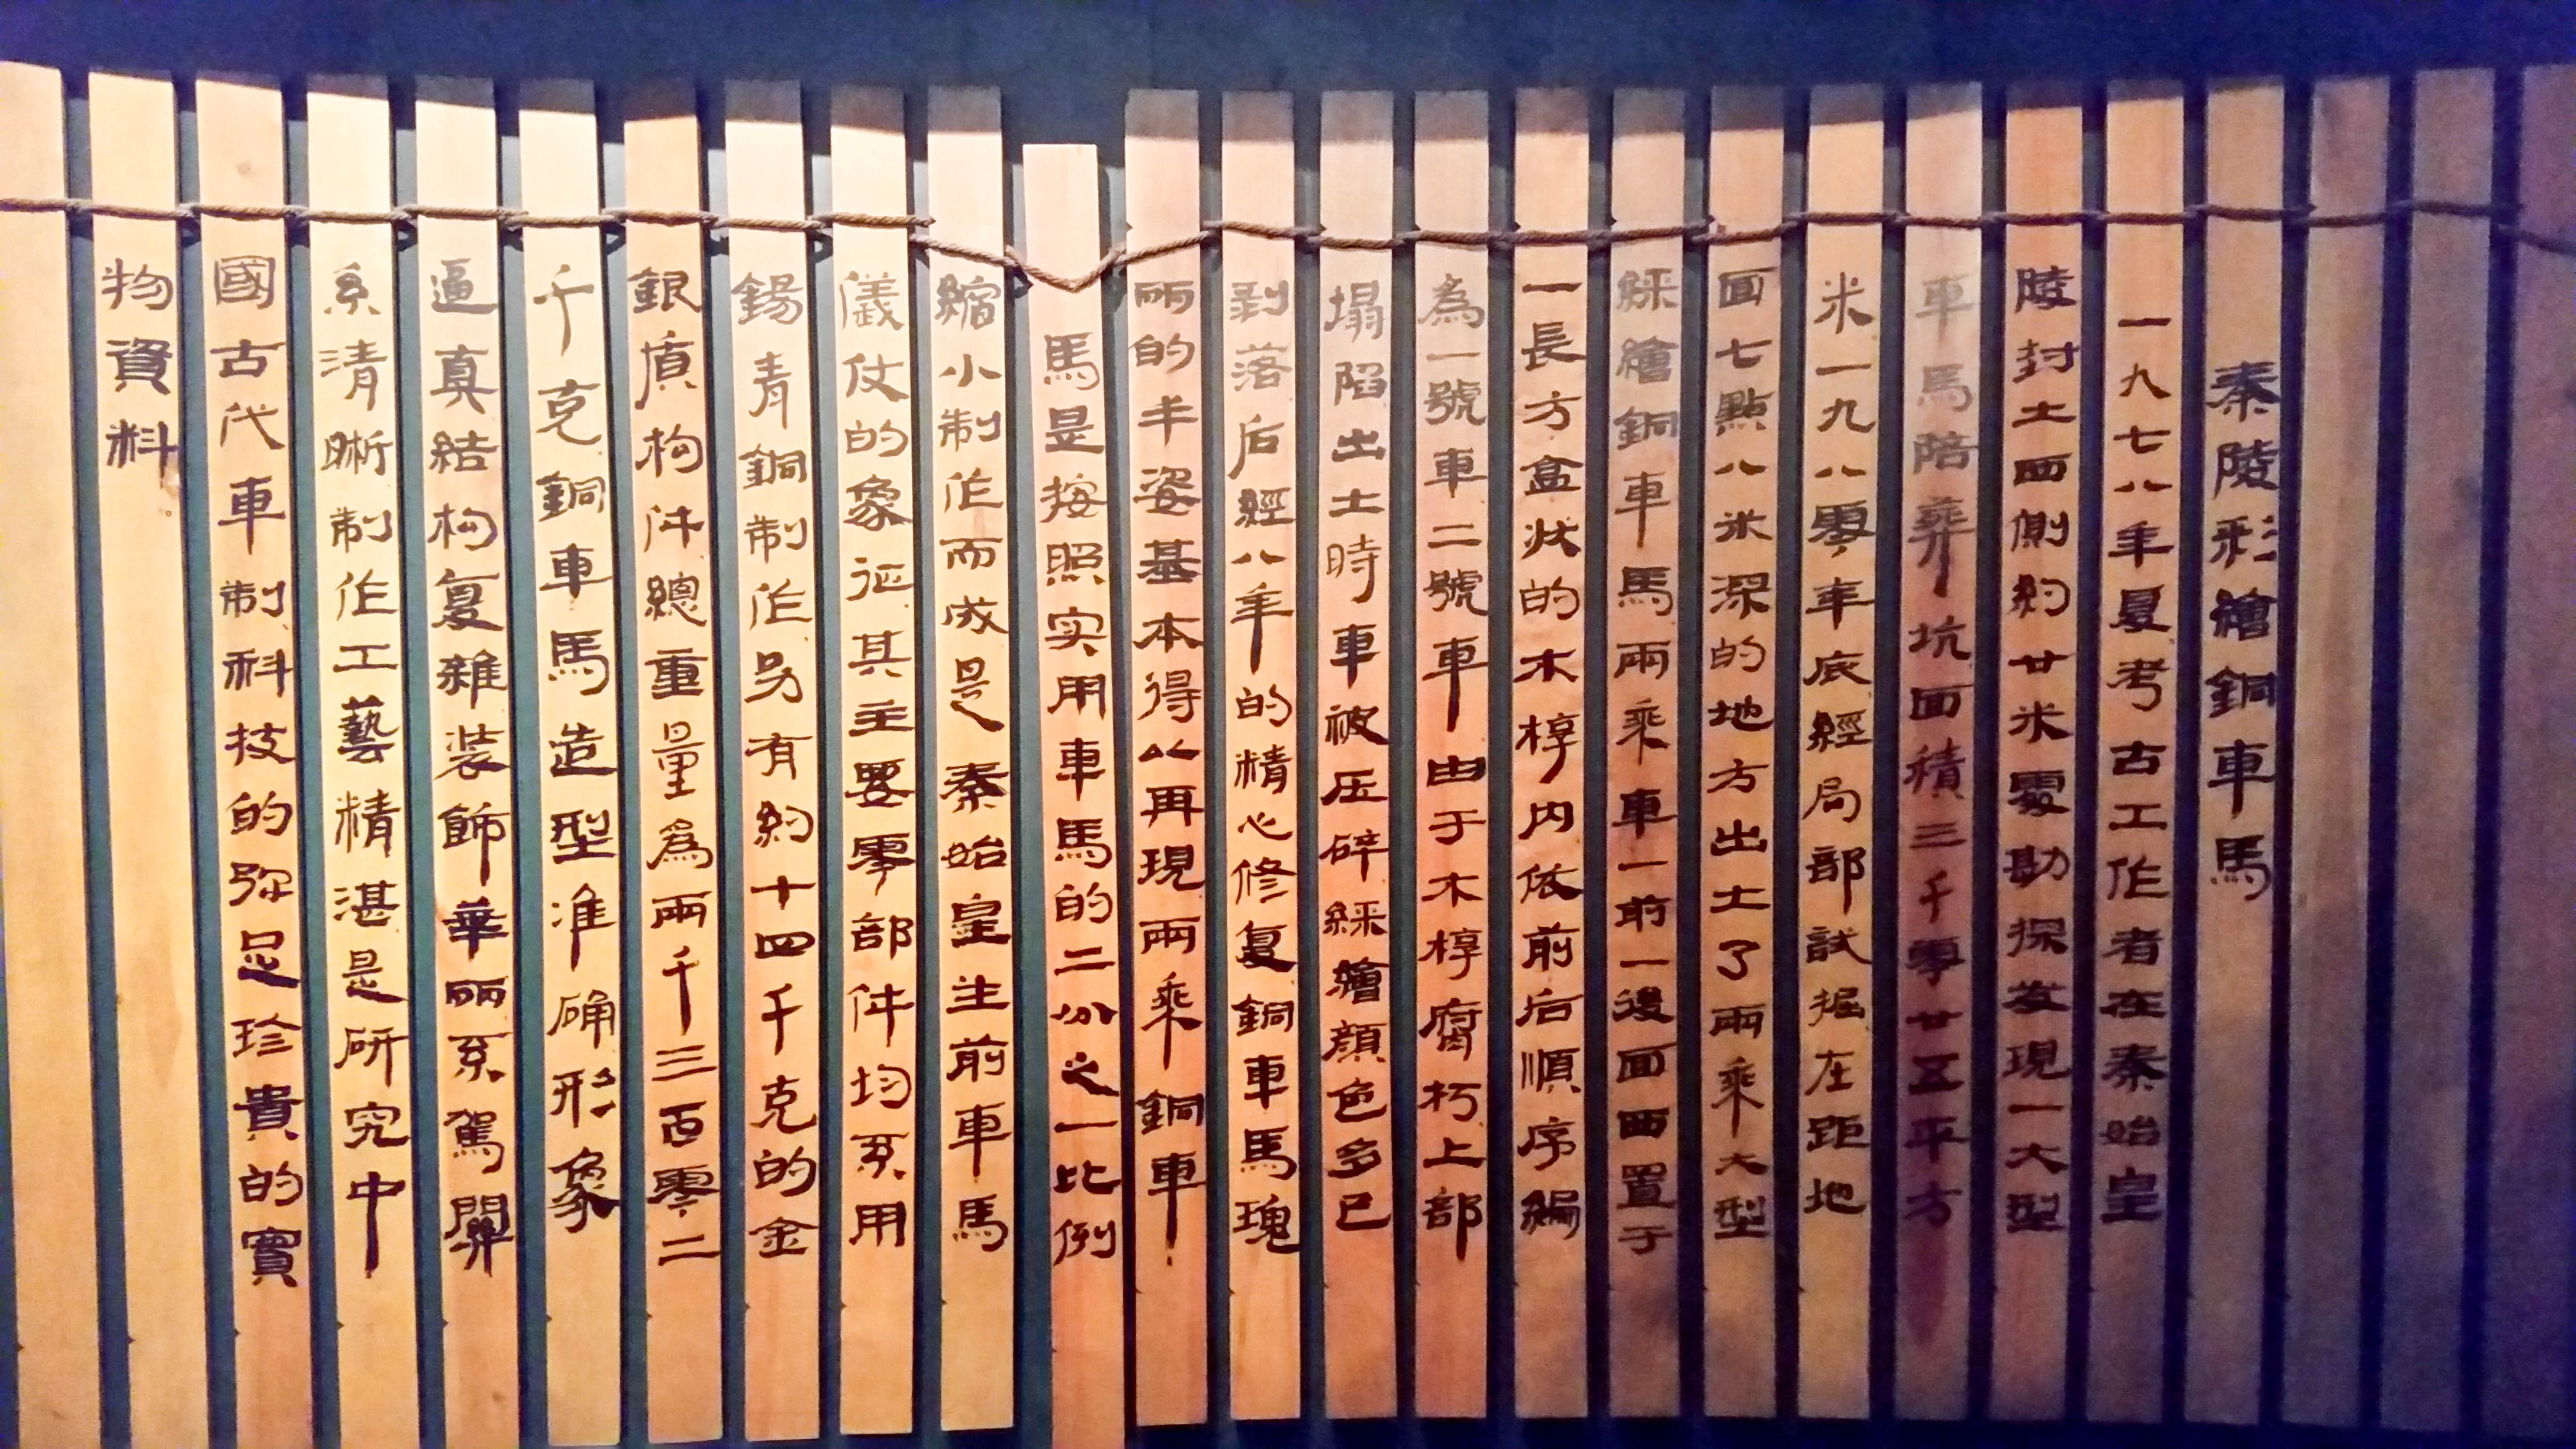 秦陵彩繪銅車馬
一九七八年夏考古工作者在秦始皇
陵封土西側約廿米處勘探发現一大型
車馬陪葬坑面積三千零廿五平方
米一九八零年底經局部試掘在距地
面七點八米深的地方出土了兩乘大型
綵繪銅車馬兩乘車一前一後面西置于
一長方盒状的木椁内依前后順序編
為一號車二號車由于木椁腐朽上部
塌陷出土時車被压碎綵繪顔色多已
剥落后經八年的精心修复銅車馬瑰
丽的丰姿基本得以再現兩乘銅車
馬是按照实用車馬的二分之一比例
縮小制作而成是秦始皇生前車馬
儀仗的象征其主要零部件均系用
錫青銅制作另有約十四千克的金
銀質构件總重量為兩千三百零二
千克銅車馬造型准确形象
逼真結构复雜装飾華丽系駕關
系清晰制作工藝精湛是研究中
國古代車制科技的弥足珍貴的實
物資料